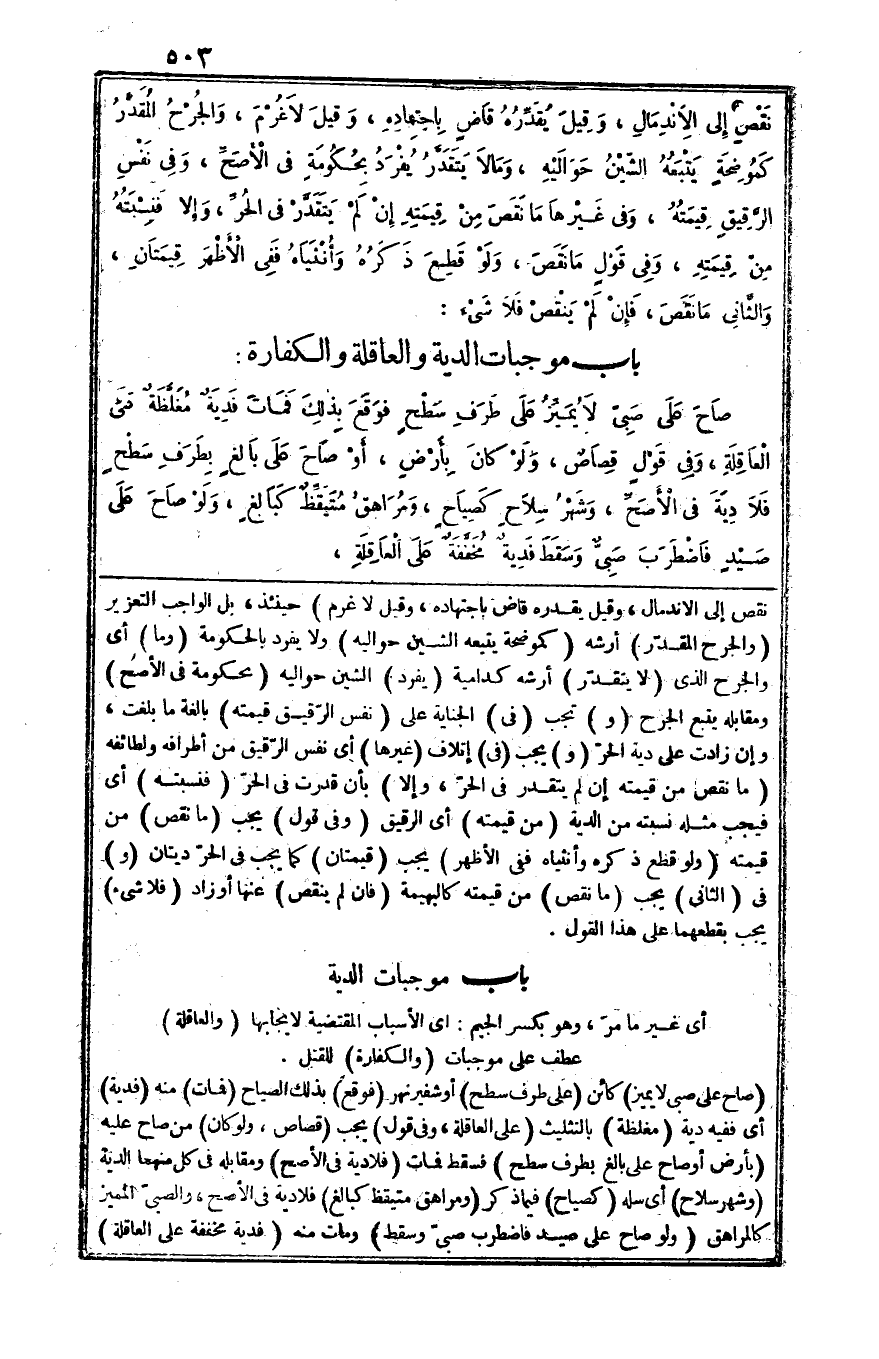 ٥٠٣
نَقْصٍ إلى الِانْدِمَالِ ، وَقِيلَ يُقَدِّرُهُ قَاضٍ بِاجْتِهَادِهِ ، وَقِيلَ لَاغُرْمَ ، وَالْجُرْحُ الْمُقَدَّرُ
كَمُوضِحَةٍ يَتْبَعُهُ الشَّيْنُ حَوَالَيْهِ ، وَمَالَا يَتَقَدَّرُ يُفْرَدُ بِحُكُومَةٍ فى الْأَصَحِّ ، وَفِى نَفْسِ
الرَّقِيقِ قِيمَتُهُ ، وَفى غَيْرِهَا مَانَقَصَ مِنْ قِيمَتِهِ إِنْ لَمْ يَتَقَدَّرْ فى الْحُرِّ ، وَإِلا فَنِسْبَتُهُ
مِنْ قِيمَتِهِ ، وَفِى قَوْلٍ مَانَقَصَ ، وَلَوْ قَطَعَ ذَكَرُهُ وَأُنْثَيَاهُ فَفِى الْأَظْهَرِ قِيمَتَانِ ،
وَالثَّانِى مَانَقَصَ ، فَإِنْ لَمْ يَنْقُصْ فَلَا شَىْءَ :
باب موجبات الدية والعاقلة والكفارة :
صَاحَ عَلَى صَبِىٍّ لَايُمَيِّزُ عَلَى طَرَفِ سَطْحٍ فَوَقَعَ بِذٰلِكَ فَمَاتَ فَدِيَةٌ مُغَلَّظَةٌ عَلَى
الْعَاقِلَةِ ، وَفِى قَوْلٍ قِصَاصٌ ، وَلَوْ كَانَ بِأَرْضٍ ، أَوْ صَاحَ عَلَى بَالِغٍ بِطَرَفِ سَطْحٍ
فَلَا دِيَةَ فى الْأَصَحِّ ، وَشَهْرُ سِلَاحٍ كَصِيَاحٍ ، وَمُرَاهِقٌ مُتَيَقِّظٌ كَبَالِغٍ ، وَلَوْ صَاحَ عَلَى
صَيْدٍ فَاضْطَرَبَ صَبِىٌّ وَسَقَطَ فَدِيَةٌ مُخَفَّفَةٌ عَلَى الْعَاقِلَةِ ،
نقص إلى الاندمال ، وقيل يقدره قاض باجتهاده ، وقيل لا غرم ) حينئذ ، بل الواجب التعزير
( والجرح المقدّر ) أرشه ( كموضحة يتبعه الشين حواليه ) ولا يفرد بالحكومة ( وما ) أى
والجرح الذى ( لا يتقدّر ) أرشه كدامية ( يفرد ) الشين حواليه ( بحكومة فى الأصح )
ومقابله يتبع الجرح ( و ) تجب ( فى ) الجناية على ( نفس الرّقيق قيمته ) بالغة ما بلغت ،
وإن زادت على دية الحرّ ( و ) يجب ( فى ) إتلاف ( غيرها ) أى نفس الرّقيق من أطرافه ولطائفه
( ما نقص من قيمته إن لم يتقدر فى الحرّ ، وإلا ) بأن قدرت فى الحرّ ( فنسبته ) أى
فيجب مثله نسبته من الدية ( من قيمته ) أى الرقيق ( وفى قول ) يجب ( ما نقص ) من
قيمته ( ولو قطع ذكره وأنثياه ففى الأظهر ) يجب ( قيمتان ) كما يجب فى الحرّ ديتان ( و )
فى ( الثانى ) يجب ( ما نقص ) من قيمته كالبهيمة ( فان لم ينقص ) عنها أو زاد ( فلا شىء )
يجب بقطعهما على هذا القول .
باب موجبات الدية
أى غير ما مرّ ، وهو بكسر الجيم : اى الأسباب المقتضية لايجابها ( والعاقلة )
عطف على موجبات ( والكفارة ) للقتل .
( صاح على صبى لا يميز ) كائن ( على طرف سطح ) أو شفير نهر ( فوقع ) بذلك الصياح ( فمات ) منه ( فدية )
أى ففيه دية ( مغلظة ) بالتثليث ( على العاقلة ، وفى قول ) يجب ( قصاص ، ولو كان ) من صاح عليه
( بأرض أو صاح على بالغ بطرف سطح ) فسقط فمات ( فلا دية فى الأصح ) ومقابله فى كل منهما الدية
( وشهر سلاح ) أى سله ( كصياح ) فيما ذكر ( ومراهق متيقظ كبالغ ) فلا دية فى الأصح ، والصبىّ المميز
كالمراهق ( ولو صاح على صيد فاضطرب صبىّ وسقط ) ومات منه ( فدية مخففة على العاقلة )